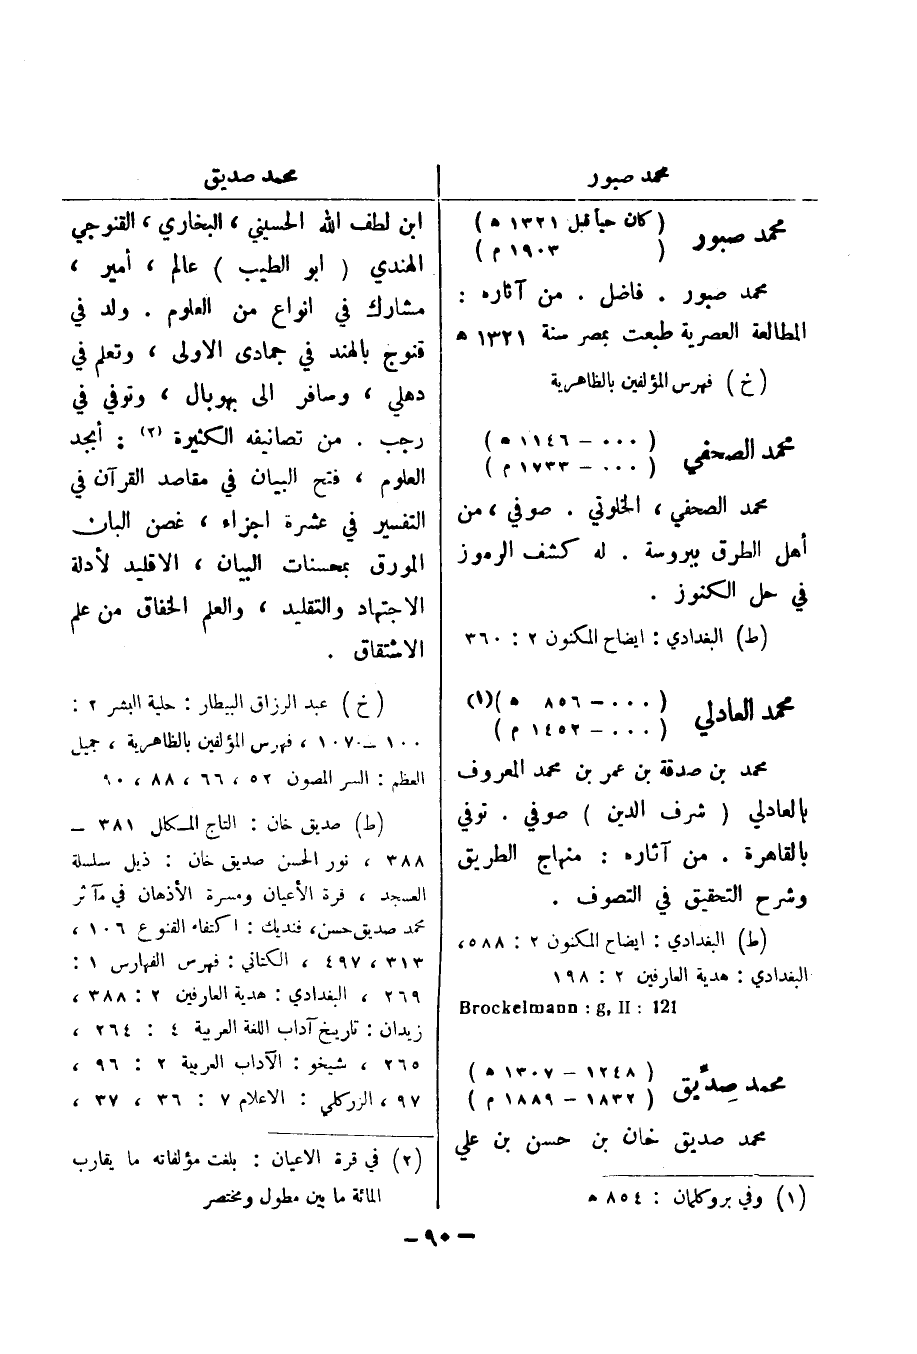 محمد صبور
محمد صبور
( كان حياً قبل ١٣٢١ ه )
( ١٩٠٣ م )
محمد صبور . فاضل . من آثاره :
المطالعة العصرية طبعت بمصر سنة ١٣٢١ ه
( خ ) فهرس المؤلفين بالظاهرية
محمد الصحفي
( ٠٠٠ – ١١٤٦ ه )
( ٠٠٠ – ١٧٣٣ م )
محمد الصحفي ، الخلوتي . صوفي ، من
أهل الطرق ببروسة . له كشف الرموز
في حل الكنوز .
(ط) البغدادي : ايضاح المكنون ٢ : ٣٦٠
محمد العادلي
( ٠٠٠ – ٨٥٦ ه )(١)
( ٠٠٠ – ١٤٥٢ م )
محمد بن صدقة بن عمر بن محمد المعروف
بالعادلي ( شرف الدين ) صوفي . توفي
بالقاهرة . من آثاره : منهاج الطريق
وشرح التحقيق في التصوف .
(ط) البغدادي : ايضاح المكنون ٢ : ٥٨٨،
البغدادي : هدية العارفين ٢ : ١٩٨
Brockelmann : g, II : 121
محمد صِدّيق
( ١٢٤٨ – ١٣٠٧ ه )
( ١٨٣٢ – ١٨٨٩ م )
محمد صديق خان بن حسن بن علي
(١) وفي بروكلمان : ٨٥٤ ه
محمد صديق
ابن لطف الله الحسيني ، البخاري ، القنوجي
الهندي ( ابو الطيب ) عالم ، أمير ،
مشارك في انواع من العلوم . ولد في
قنوج بالهند في جمادى الاولى ، وتعلم في
دهلي ، وسافر الى بهوبال ، وتوفي في
رجب . من تصانيفه الكثيرة (٢) : أبجد
العلوم ، فتح البيان في مقاصد القرآن في
التفسير في عشرة اجزاء ، غصن البان
المورق بمحسنات البيان ، الاقليد لأدلة
الاجتهاد والتقليد ، والعلم الخفاق من علم
الاشتقاق .
( خ ) عبد الرزاق البيطار : حلية البشر ٢ :
١٠٠ – ١٠٧٠ ، فهرس المؤلفين بالظاهرية ، جميل
العظم : السر المصون ٥٢ ، ٦٦ ، ٨٨ ، ٩٠
(ط) صديق خان : التاج المكلل ٣٨١ –
٣٨٨ ، نور الحسن صديق خان : ذيل سلسلة
العسجد ، قرة الأعيان ومسرة الأذهان في مآثر
محمد صديق حسن، فنديك : اكتفاء القنوع ١٠٦ ،
٣١٣ ، ٤٩٧ ، الكتاني : فهرس الفهارس ١ :
٢٦٩ ، البغدادي : هدية العارفين ٢ : ٣٨٨ ،
زيدان : تاريخ آداب اللغة العربية ٤ : ٢٦٤ ،
٢٦٥ ، شيخو : الآداب العربية ٢ : ٩٦ ،
٩٧ ، الزركلي : الاعلام ٧ : ٣٦ ، ٣٧ ،
(٢) في قرة الاعيان : بلغت مؤلفاته ما يقارب
المائة ما بين مطول ومختصر
– ٩٠ –